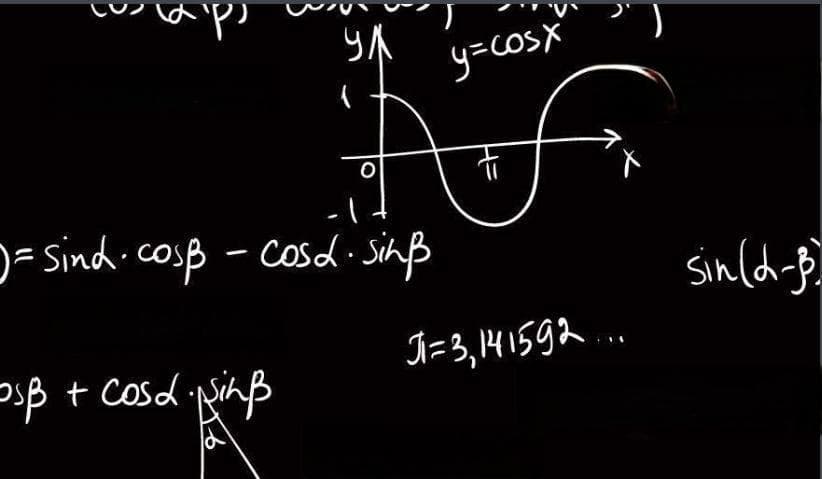 y
y=cosx
1
0
π
x
-1
)= sinα · cosβ - cosα · sinβ
sin(α-β)
π=3,141592...
osβ + cosα · sinβ
α